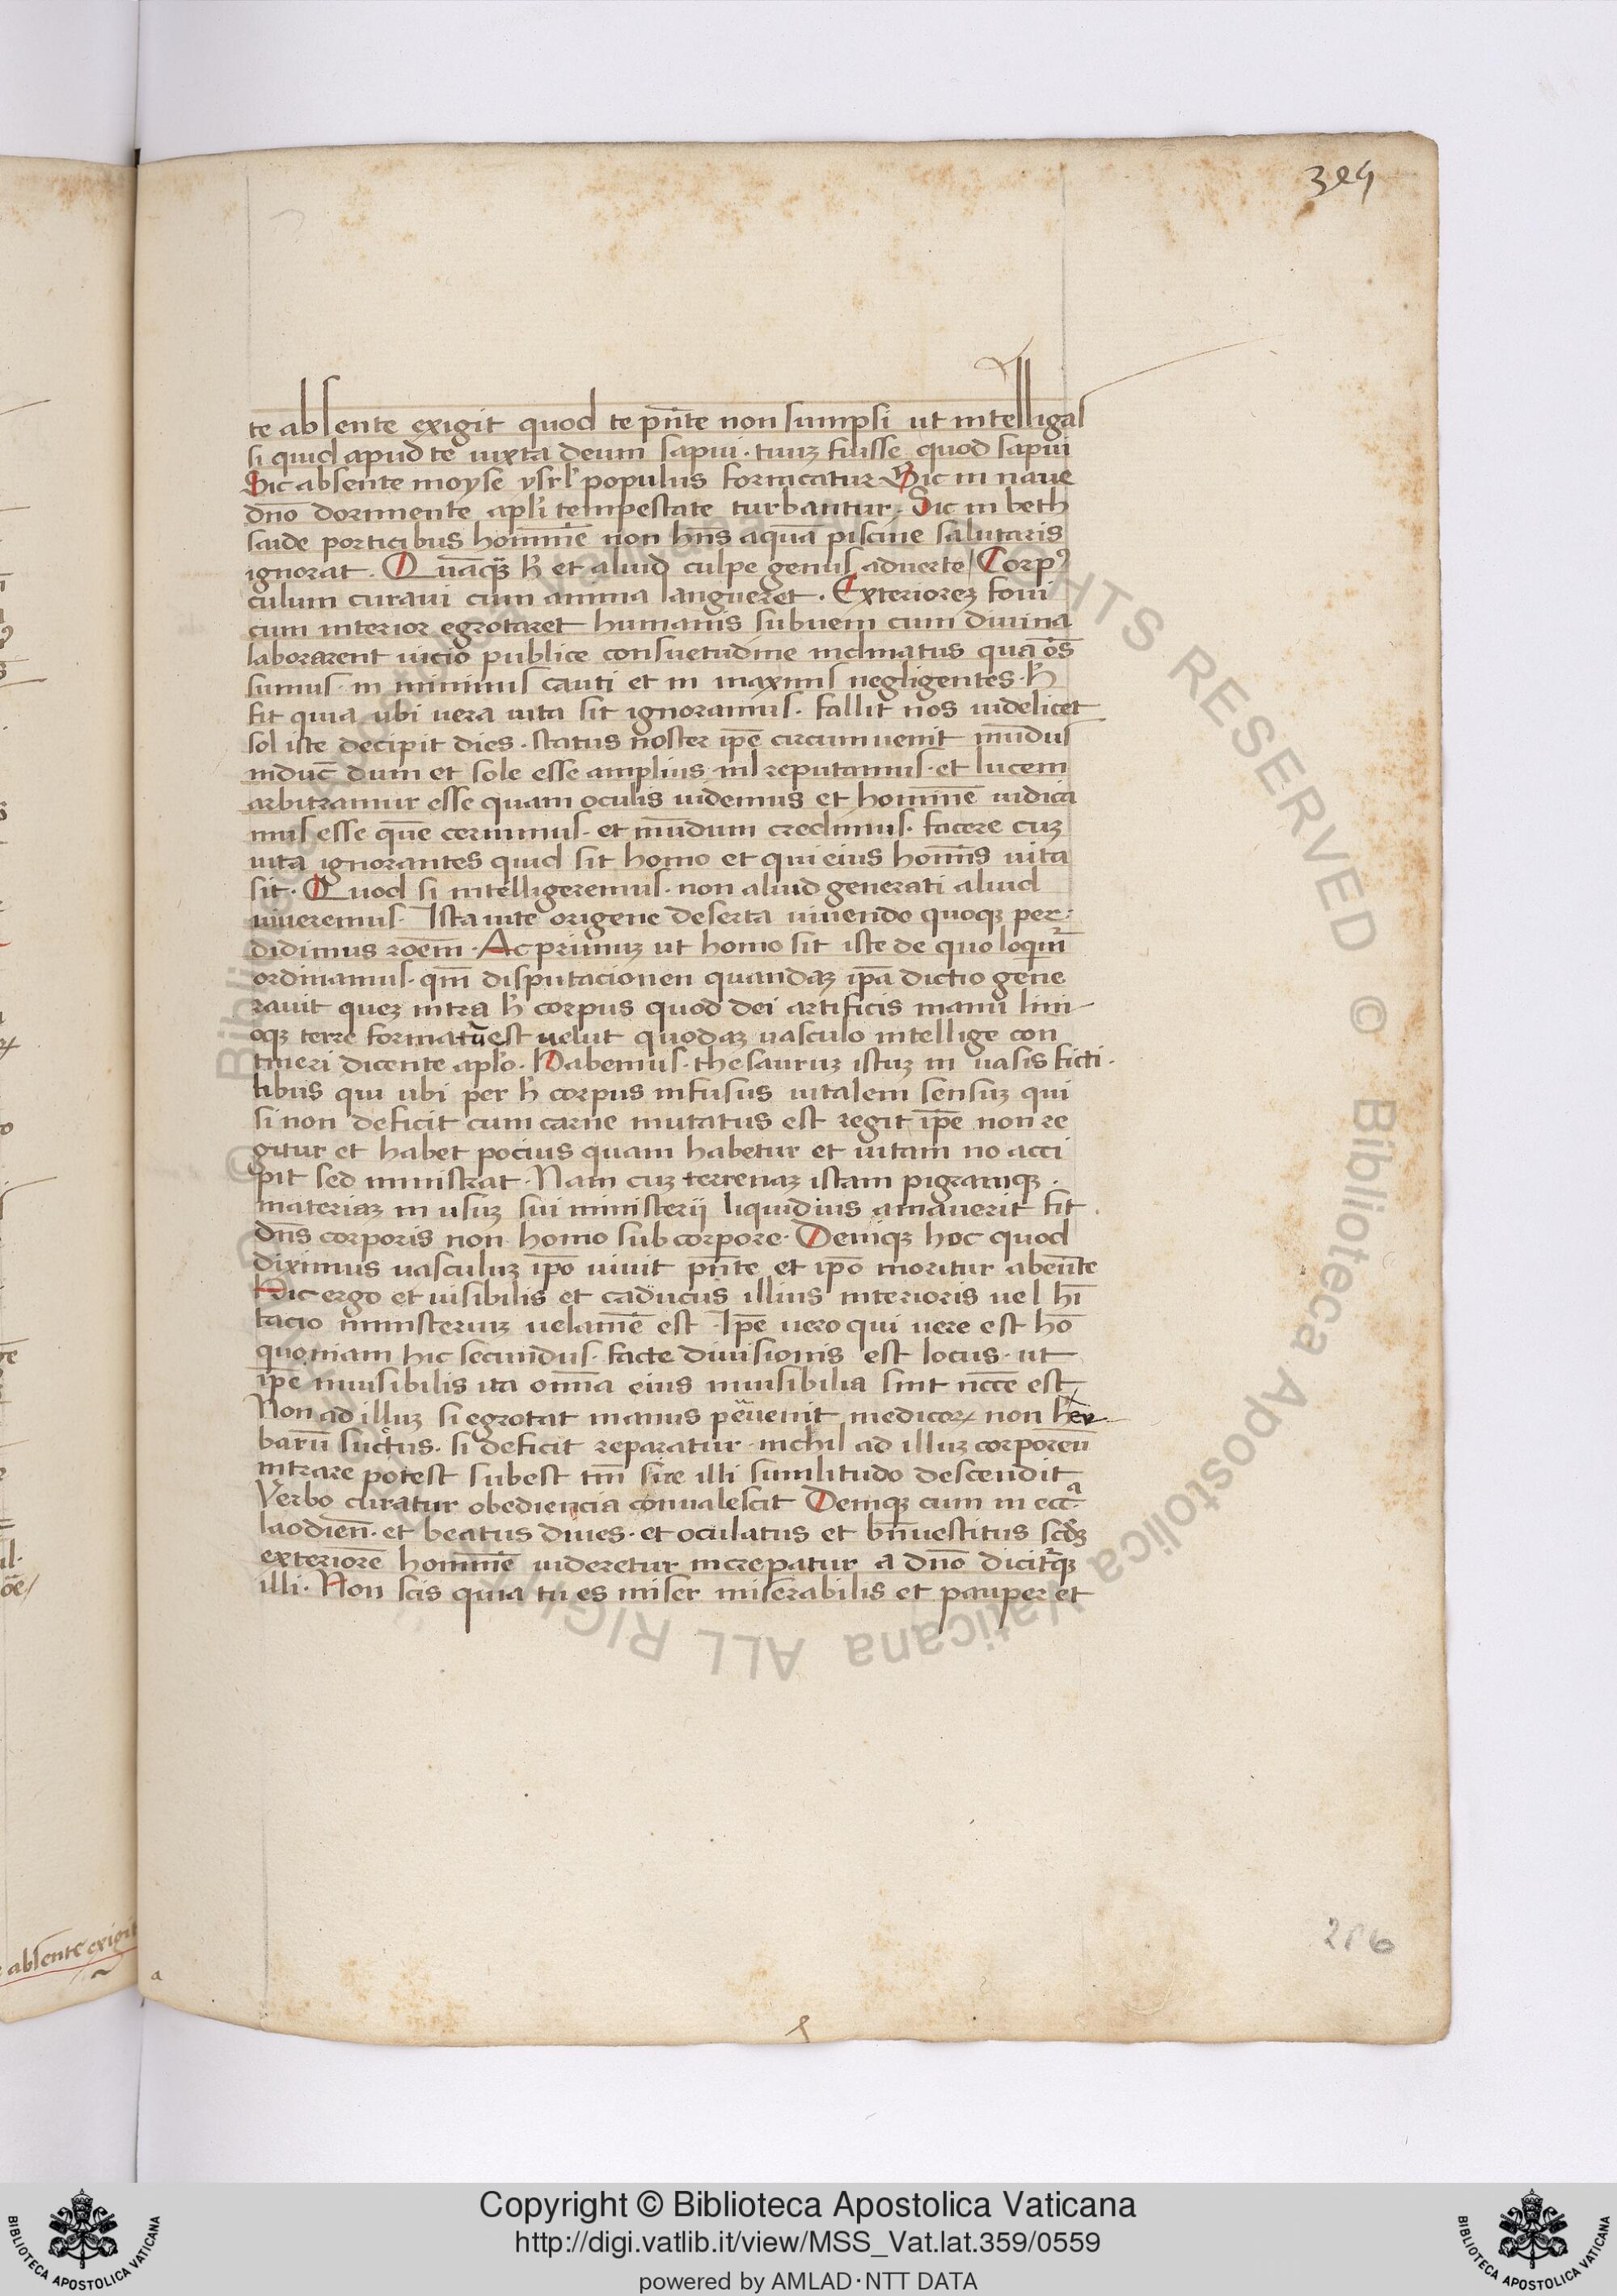 3e9
te absente exigit quod te pn̄te non sumpsi ut intelligas
si quid apud te iuxta deum sapui · tuuꝫ fuisse quod sapui
Sic absente moyse ysrl̓ populus fornicatur Sic in naue
dn̄o dormiente apl̓i tempestate turbantur · Sic in beth
saide porticibus homīnē non hn̄s aquā piscine salutaris
ignorat · Quāqꝫ h̓ et aliud culpe genus aduerte / Corpꝰ
culum curaui cum anima langueret · Exterioreꝫ foui
cum interior egrotaret humanis subueni cum diuina
laborarent uicio publice consuetudine inclinatus qua oēs
sumus · in minimis cauti et in maximis negligentes · h̓
fit quia ubi uera uita sit ignoramus · fallit nos uidelicet
sol iste decipit dies · status noster ip̄e circumuenit mūdus
inducͭ dum et sole esse amplius nil reputamus · et lucem
arbitramur esse quam oculis uidemus et homīnē iudica
mus esse quē cernimus · et mūdum credimus · facere cuꝫ
uita ignorantes quid sit homo et qui eius homīs uita
sit · Quod si intelligeremus · non aliud generati aliud
uiueremus · Ista uite origene deserta uiuendo quoqꝫ per ·
didimus roēm · Ac primuꝫ ut homo sit iste de quo loqm̄r
ordinamus · qm̄ disputacionen quandaꝫ ip̄a dictio gene
rauit queꝫ intra h̓ corpus quod dei artificis manu limi
oqꝫ terre formatū est uelut quodaꝫ uasculo intellige con
tineri dicente apl̓o · Habemus · thesauruꝫ istuꝫ in uasis ficti ·
libus qui ubi per h̓ corpus infusus uitalem sensuꝫ qui
si non deficit cum carne mutatus est regit ip̄e non re
gitur et habet pocius quam habetur et uitam no acci
pit sed ministrat · Nam cuꝫ terrenaꝫ istam pigramqꝫ ·
materiaꝫ in usuꝫ sui ministerij liquidius amauerit fit ·
dn̄s corporis non homo sub corpore · Deniqꝫ hoc quod
diximus uasculuꝫ ip̄o uiuit pn̄te et ip̄o moritur abēnte
Hic ergo et uisibilis et caducus illius interioris uel hī
tacio ministeriuꝫ uelamē est · Ip̄e uero qui uere est hō
quoniam hic secundus · facte diuisionis est locus · ut
ip̄e inuisibilis ita omīa eius inuisibilia sint nccē est
Non ad illuꝫ si egrotat manus peruenit medicoꝝ non her
barū suctus · si deficit reparatur · nichil ad illuꝫ corporeū
intrare potest subest tm̄ sire illi similitudo descendit
Verbo curatur obediencia conualescit Deniqꝫ cum in ecc̄a
laodien̄ · et beatus diues · et oculatus et bn̄uestitus scd̓ꝫ
exteriorē homīnē uideretur increpatur a dn̄o dicit᷑qꝫ
illi · Non scis quia tu es miser miserabilis et pauper et
absente exigit
a
286
Copyright © Biblioteca Apostolica Vaticana
http://digi.vatlib.it/view/MSS_Vat.lat.359/0559
powered by AMLAD·NTT DATA
BIBLIOTECA APOSTOLICA VATICANA
BIBLIOTECA APOSTOLICA VATICANA
© Biblioteca Apostolica Vaticana ALL RIGHTS RESERVED © Biblioteca Apostolica Vaticana ALL RIGHTS RESERVED